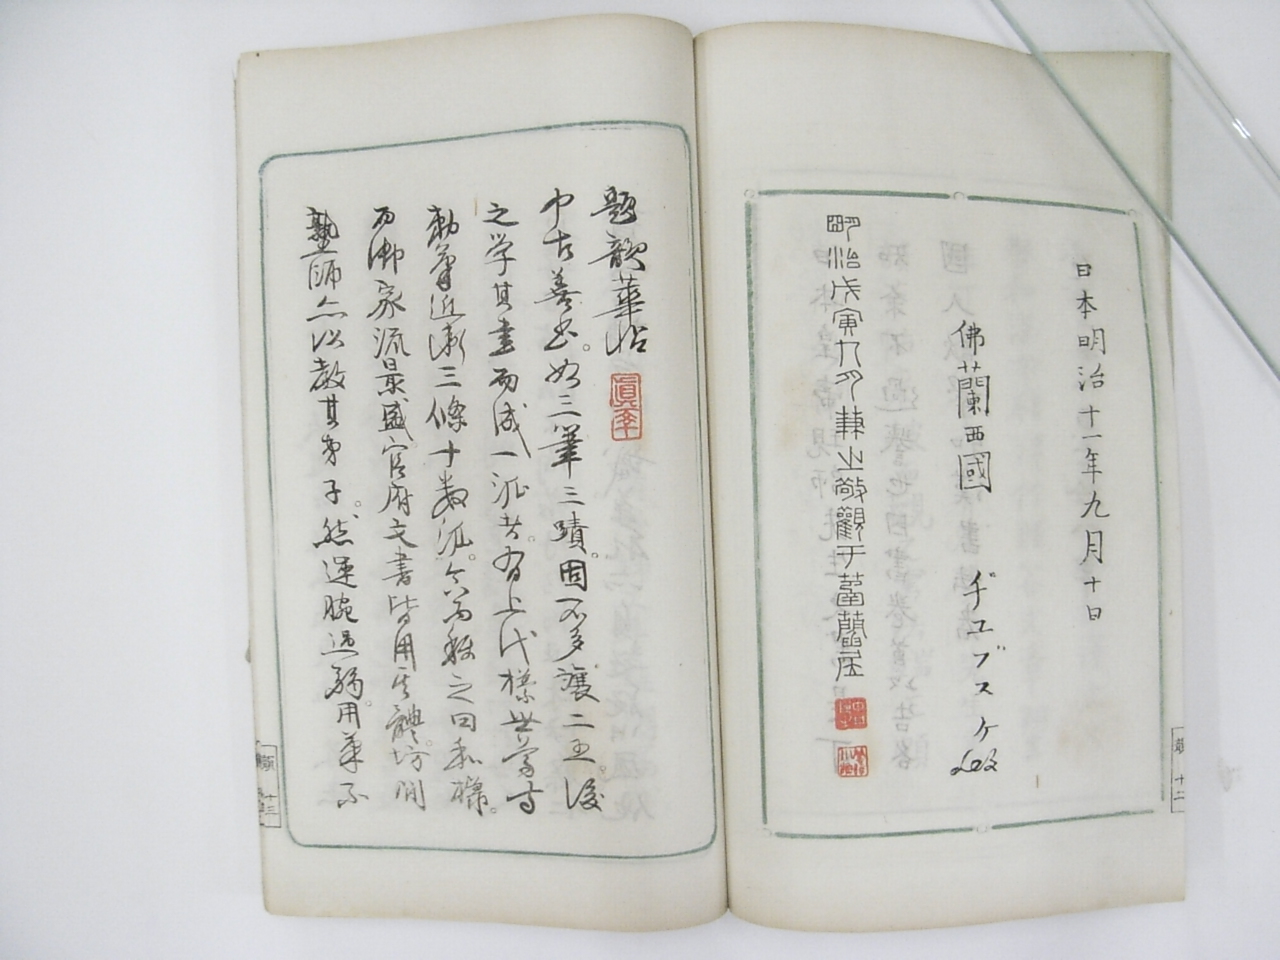 日本明治十一年九月十日
佛蘭西國 ヂユブスケ 敬
明治戊寅九月兼之敬觀于
題韻華帖
中古善書。如三筆三蹟。固不多讓二王。後
之学其書而成一派者。有上代樣世尊寺
勅筆近衛三條十数派。合而称之曰和樣。
而御家流最盛官府文書皆用其體。坊間
塾師亦以教其弟子。然運腕過弱。用筆不
十二
十三